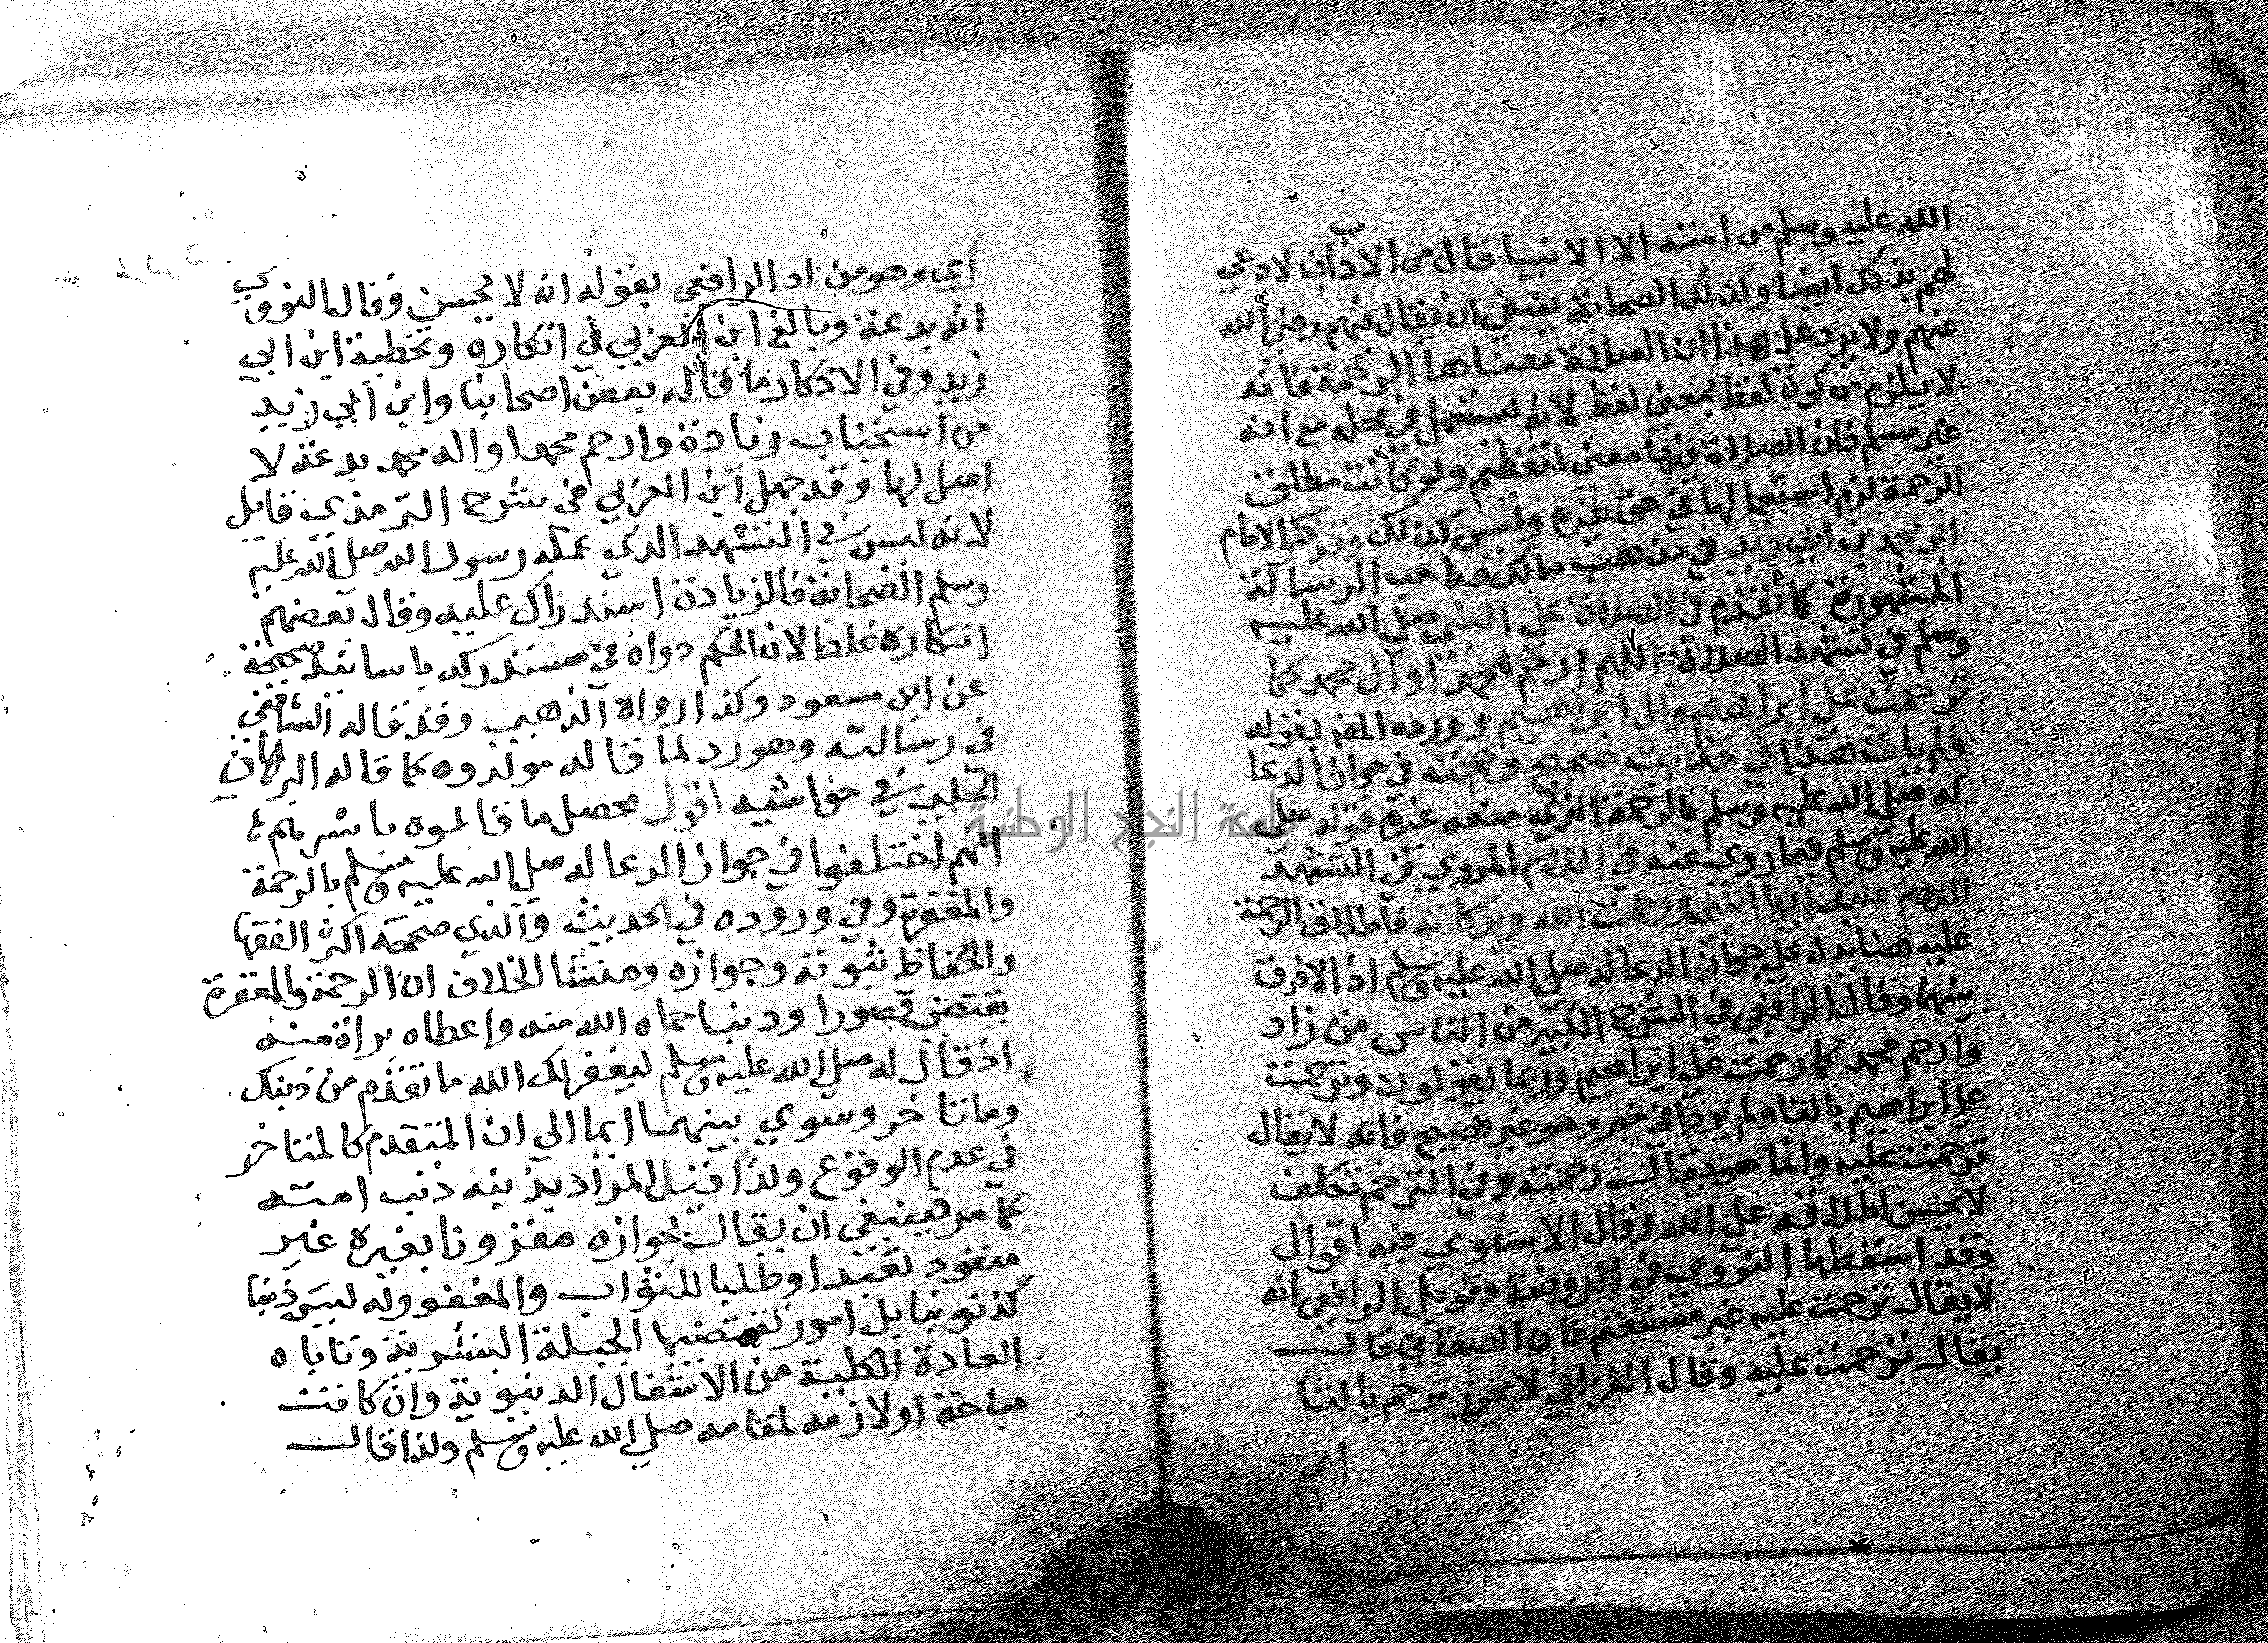 الله عليه وسلم من امته الا الانبيا قال من الاداب ان لا دعي
لهم بذلك ايضا وكذلك الصحابة ينبغي ان يقال فيهم رضي الله
عنهم ولا يرد على هذا ان الصلاة معناها الرحمة فانه
لا يلزم من كون لفظ بمعني لفظ لانه يستعمل في محله مع انه
غير مسلم فان الصلاة فيها معني لتعظيم ولو كانت مطلق
الرحمة لزم استعمالها في حق غيره وليس كذلك وقد ذكر الامام
ابو محمد بن ابي زيد في مذهب مالك صاحب الرسالة
المشهورة كما تقدم في الصلاة على النبي صلى الله عليه
وسلم في تشهد الصلاة اللهم ارحم محمدا وآل محمد كما
ترحمت على ابراهيم وال ابراهيم وورده المغر بقوله
ولم يات هذا في حديث صحيح وحجته في جواز الدعا
له صلى الله عليه وسلم بالرحمة الذي منعه غيره قوله صلى
الله عليه وسلم فيما روى عنه في السلام المروي في التشهد
السلام عليك ايها النبي ورحمت الله وبركاته فاطلاق الرحمة
عليه هنا يدل على جواز الدعا له صلى الله عليه وسلم اذ لا فرق
بينهما وقال الرافعي في الشرح الكبير من الناس من زاد
وارحم محمد كما رحمت على ابراهيم وربما يقولون وترحمت
على ابراهيم بالتا ولم يرد في خبر وهو غير فصيح فانه لا يقال
ترحمت عليه وانما هو يقال رحمته وفي الترحم تكلف
لا يحسن اطلاقه على الله وقال الاسنوي فيه اقوال
وقد اسقطها النووي في الروضة وقول الرافعي انه
لا يقال ترحمت عليه غير مستقيم فان الصغاني قال
يقال ترحمت عليه وقال الغزالي لا يجوز ترحم بالتا
اي
اي وهو من اد الرافعي بقوله انه لا يحسن وقال النووي
انه بدعة وبالغ ابن العربي في انكاره وتخطية ابن ابي
زيد وفي الاذكار ما قاله بعض اصحابنا وابن ابي زيد
من استحباب زيادة وارحم محمدا واله محمد بدعة لا
اصل لها وقد جهل ابن العربي في شرح الترمذي قايل
لانه ليس في التشهد الذي علمه رسول الله صلى الله عليه
وسلم الصحابة فالزيادة استدراك عليه وقال بعضهم
انكاره غلط لان الحكم رواه في مستدركه باسانيد صحيحة
عن ابن مسعود وكذا رواه الذهبي وقد قاله الشافعي
في رسالته وهو رد لما قاله مولدوه كما قاله البرهان
الحلبي في حواشيه اقول محصل ما قالوه باسرهم
انهم اختلفوا في جواز الدعا له صلى الله عليه وسلم بالرحمة
والمغفرة وفي وروده في الحديث والذي صححه اكثر الفقها
والحفاظ ثبوته وجوازه ومنشا الخلاف ان الرحمة والمغفرة
يقتضي قصورا وذنبا حماه الله منه واعطاه براة منه
اذ قال له صلى الله عليه وسلم ليغفر لك الله ما تقدم من ذنبك
وما تاخر وسوي بينهما ايما الي ان المتقدم كالمتاخر
في عدم الوقوع ولذا قيل المراد بذنبه ذنب امته
كما مر فينبغي ان يقال بجوازه مقرونا بغيره غير
منفرد تعبدا وطلبا للثواب والمغفور له ليس ذنبا
كذنوبنا بل امور تقتضيها الجبلة البشرية وتاباه
العادة الكلية من الاشغال الدنيوية وان كانت
مباحة او لازمه لمقامه صلي الله عليه وسلم ولذا قال
جامعة النجاح الوطنية